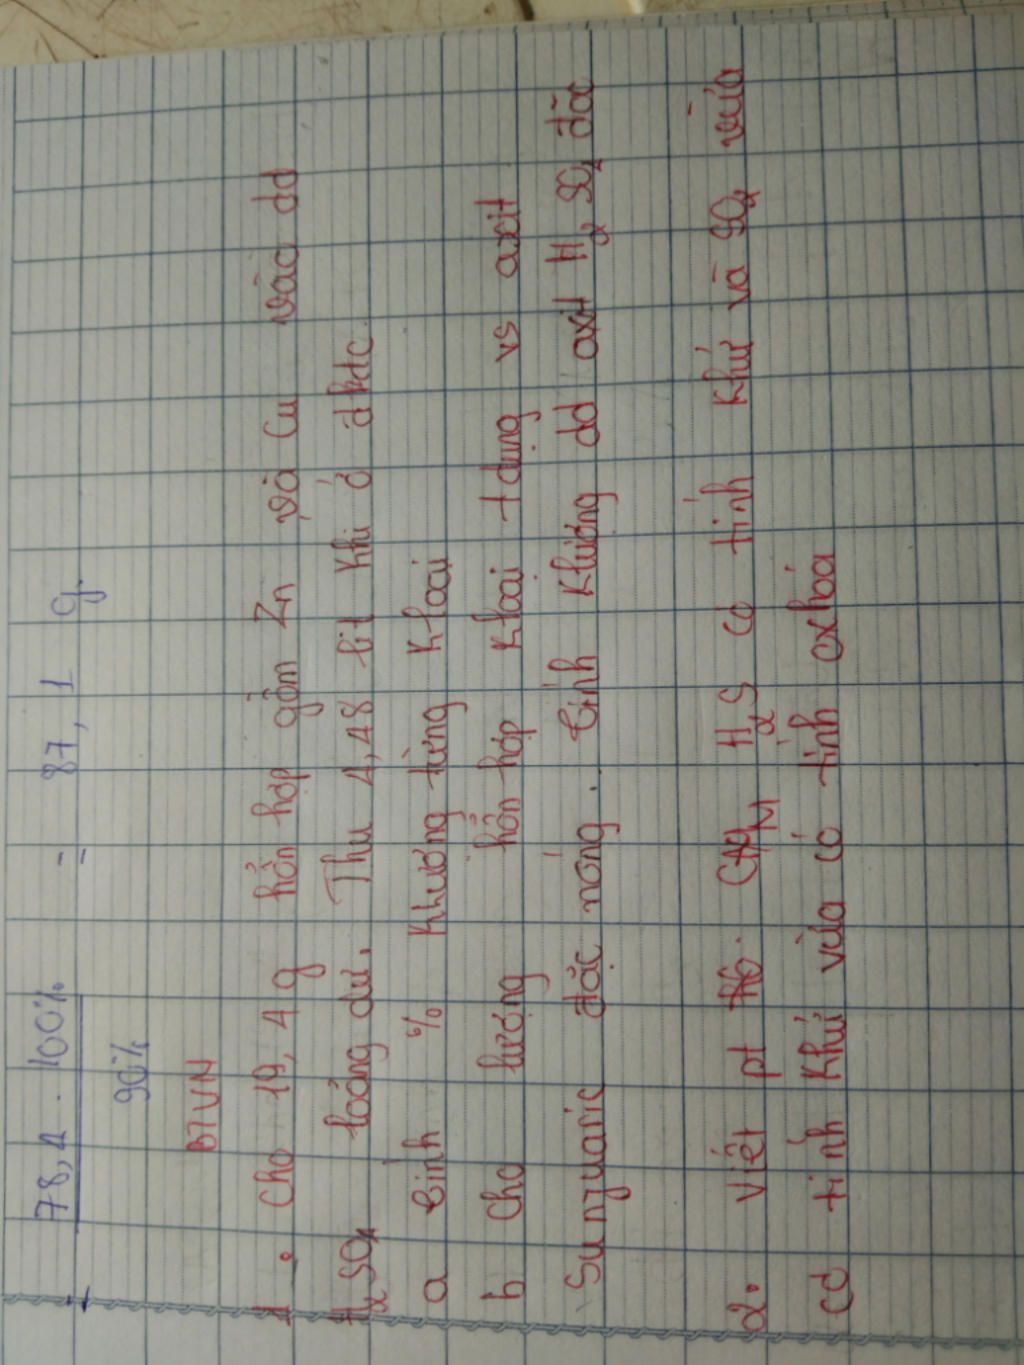 78,4 . 100% = 87,1 g.
90%
BTVN
1. Cho 19,4 g hỗn hợp gồm Zn và Cu vào dd
H2SO4 loãng dư. Thu 4,48 lít khí ở đktc.
a tính % khượng từng kloại
b cho lượng hỗn hợp kloại tdụng vs axit
Sunfuaric đặc nóng. tính khượng dd axit H2SO4 đặc
2. viết pt CM H2S có tính khử và SO2 vừa
có tính khử vừa có tính oxhóa